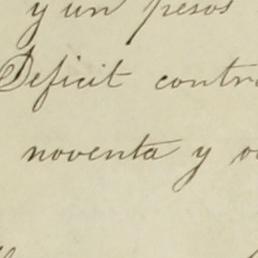 y un pesos
Deficit contra
noventa y o